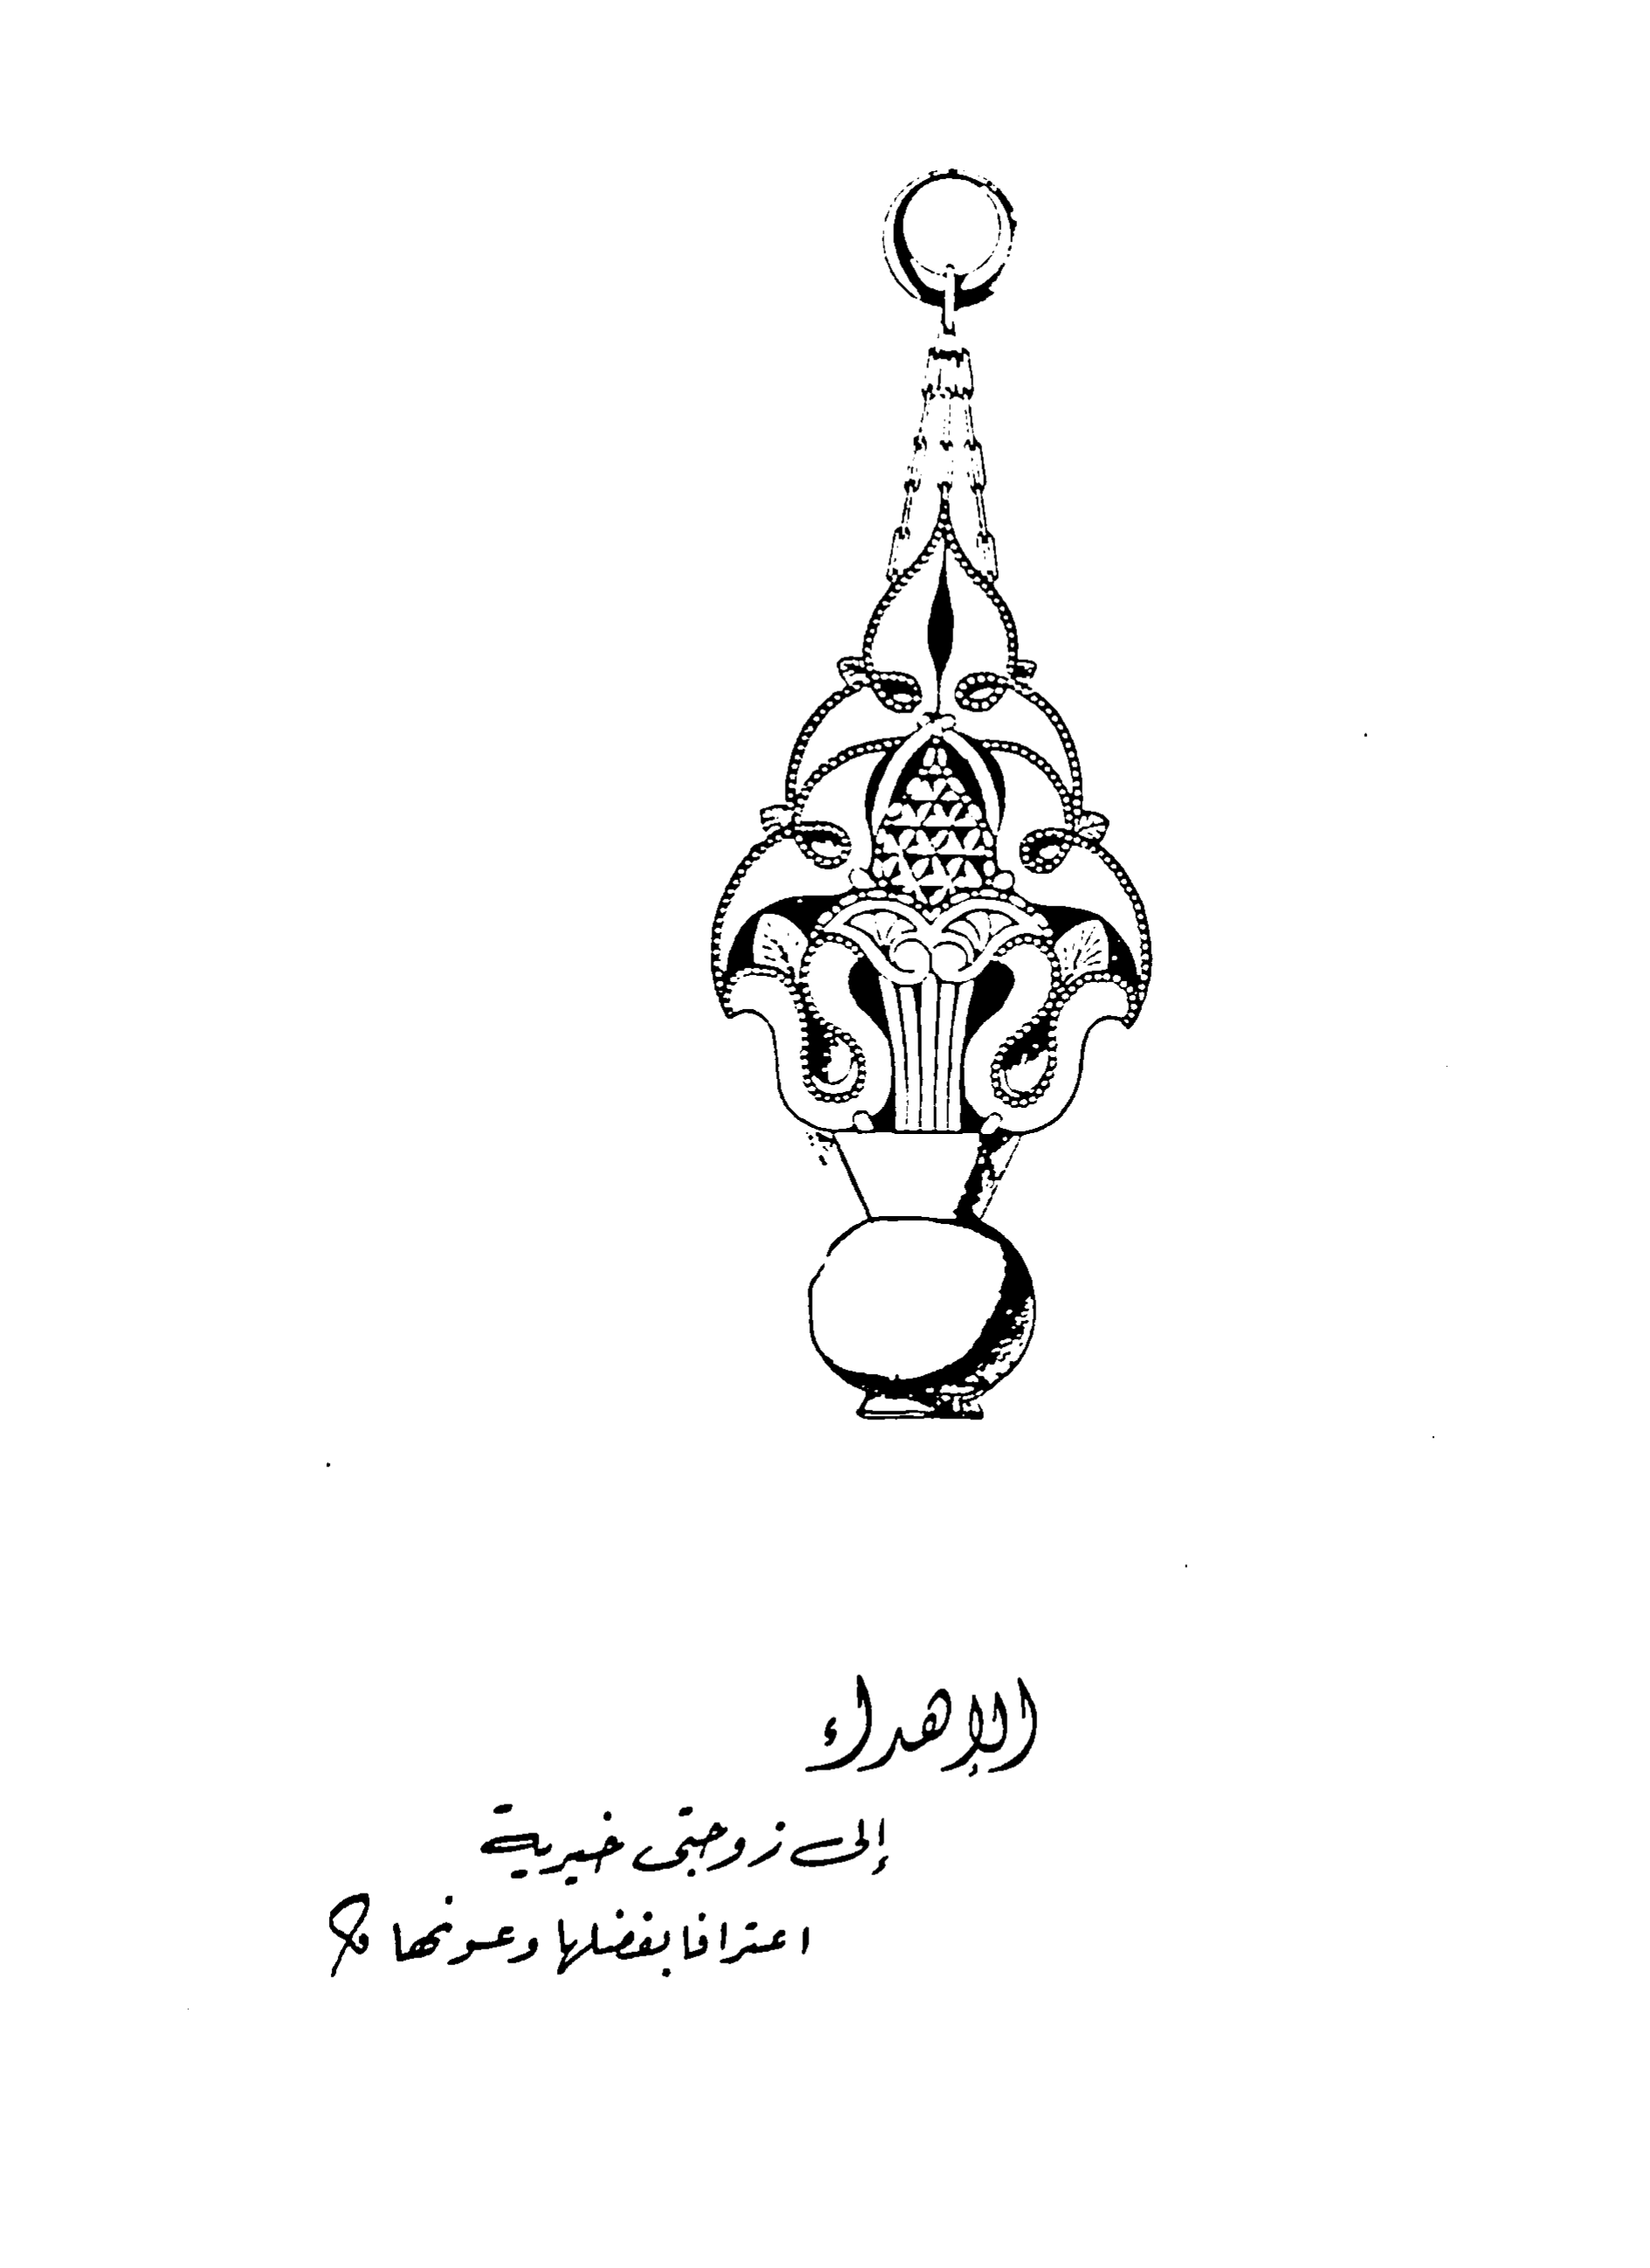 الإهداء
إلى زوجتى خيرية
اعترافا بفضلها وعونها